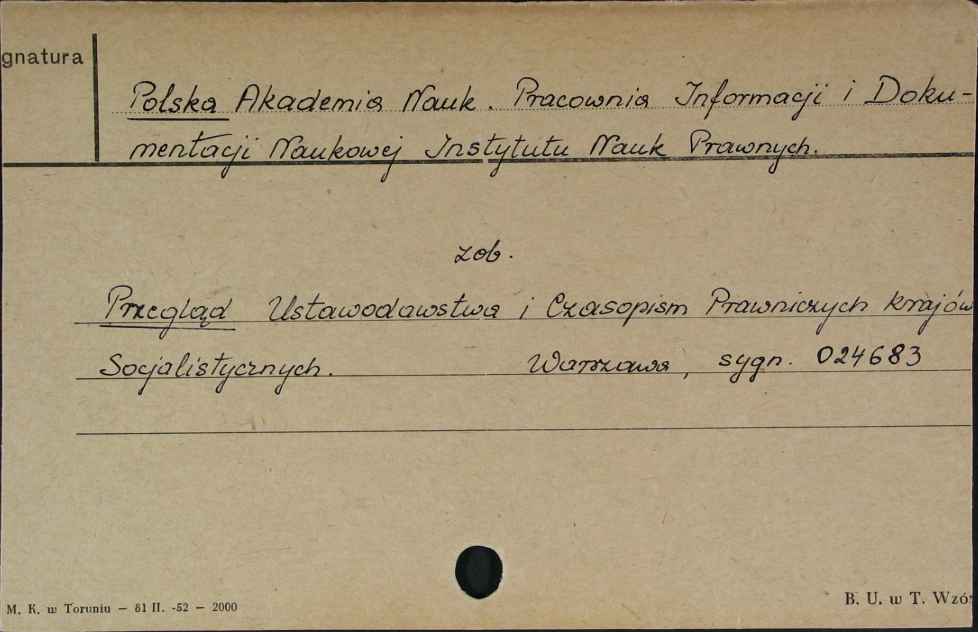 gnatura
Polska Akademia Nauk. Pracownia Informacji i Doku-
mentacji Naukowej Instytutu Nauk Prawnych.
zob.
Przegląd Ustawodawstwa i Czasopism Prawniczych krajów
Socjalistycznych. Warszawa, sygn. 024683
M. K. w Toruniu — 81 II. -52 — 2000
B. U. w T. Wzó